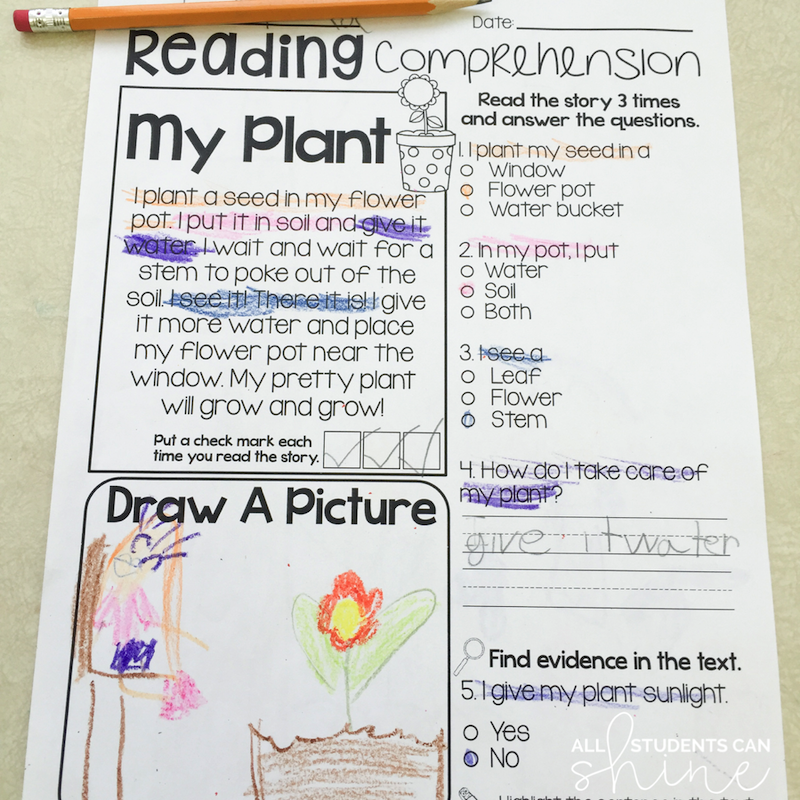 Date:
Reading Comprehension
My Plant
I plant a seed in my flower
pot. I put it in soil and give it
water. I wait and wait for a
stem to poke out of the
soil. I see it! There it is! I give
it more water and place
my flower pot near the
window. My pretty plant
will grow and grow!
Put a check mark each
time you read the story.
Draw A Picture
Read the story 3 times
and answer the questions.
1. I plant my seed in a
Window
Flower pot
Water bucket
2. In my pot, I put
Water
Soil
Both
3. I see a
Leaf
Flower
Stem
4. How do I take care of
my plant?
give it water
Find evidence in the text.
5. I give my plant sunlight.
Yes
No
ALL STUDENTS CAN
shine
Highlight the sentence in the text